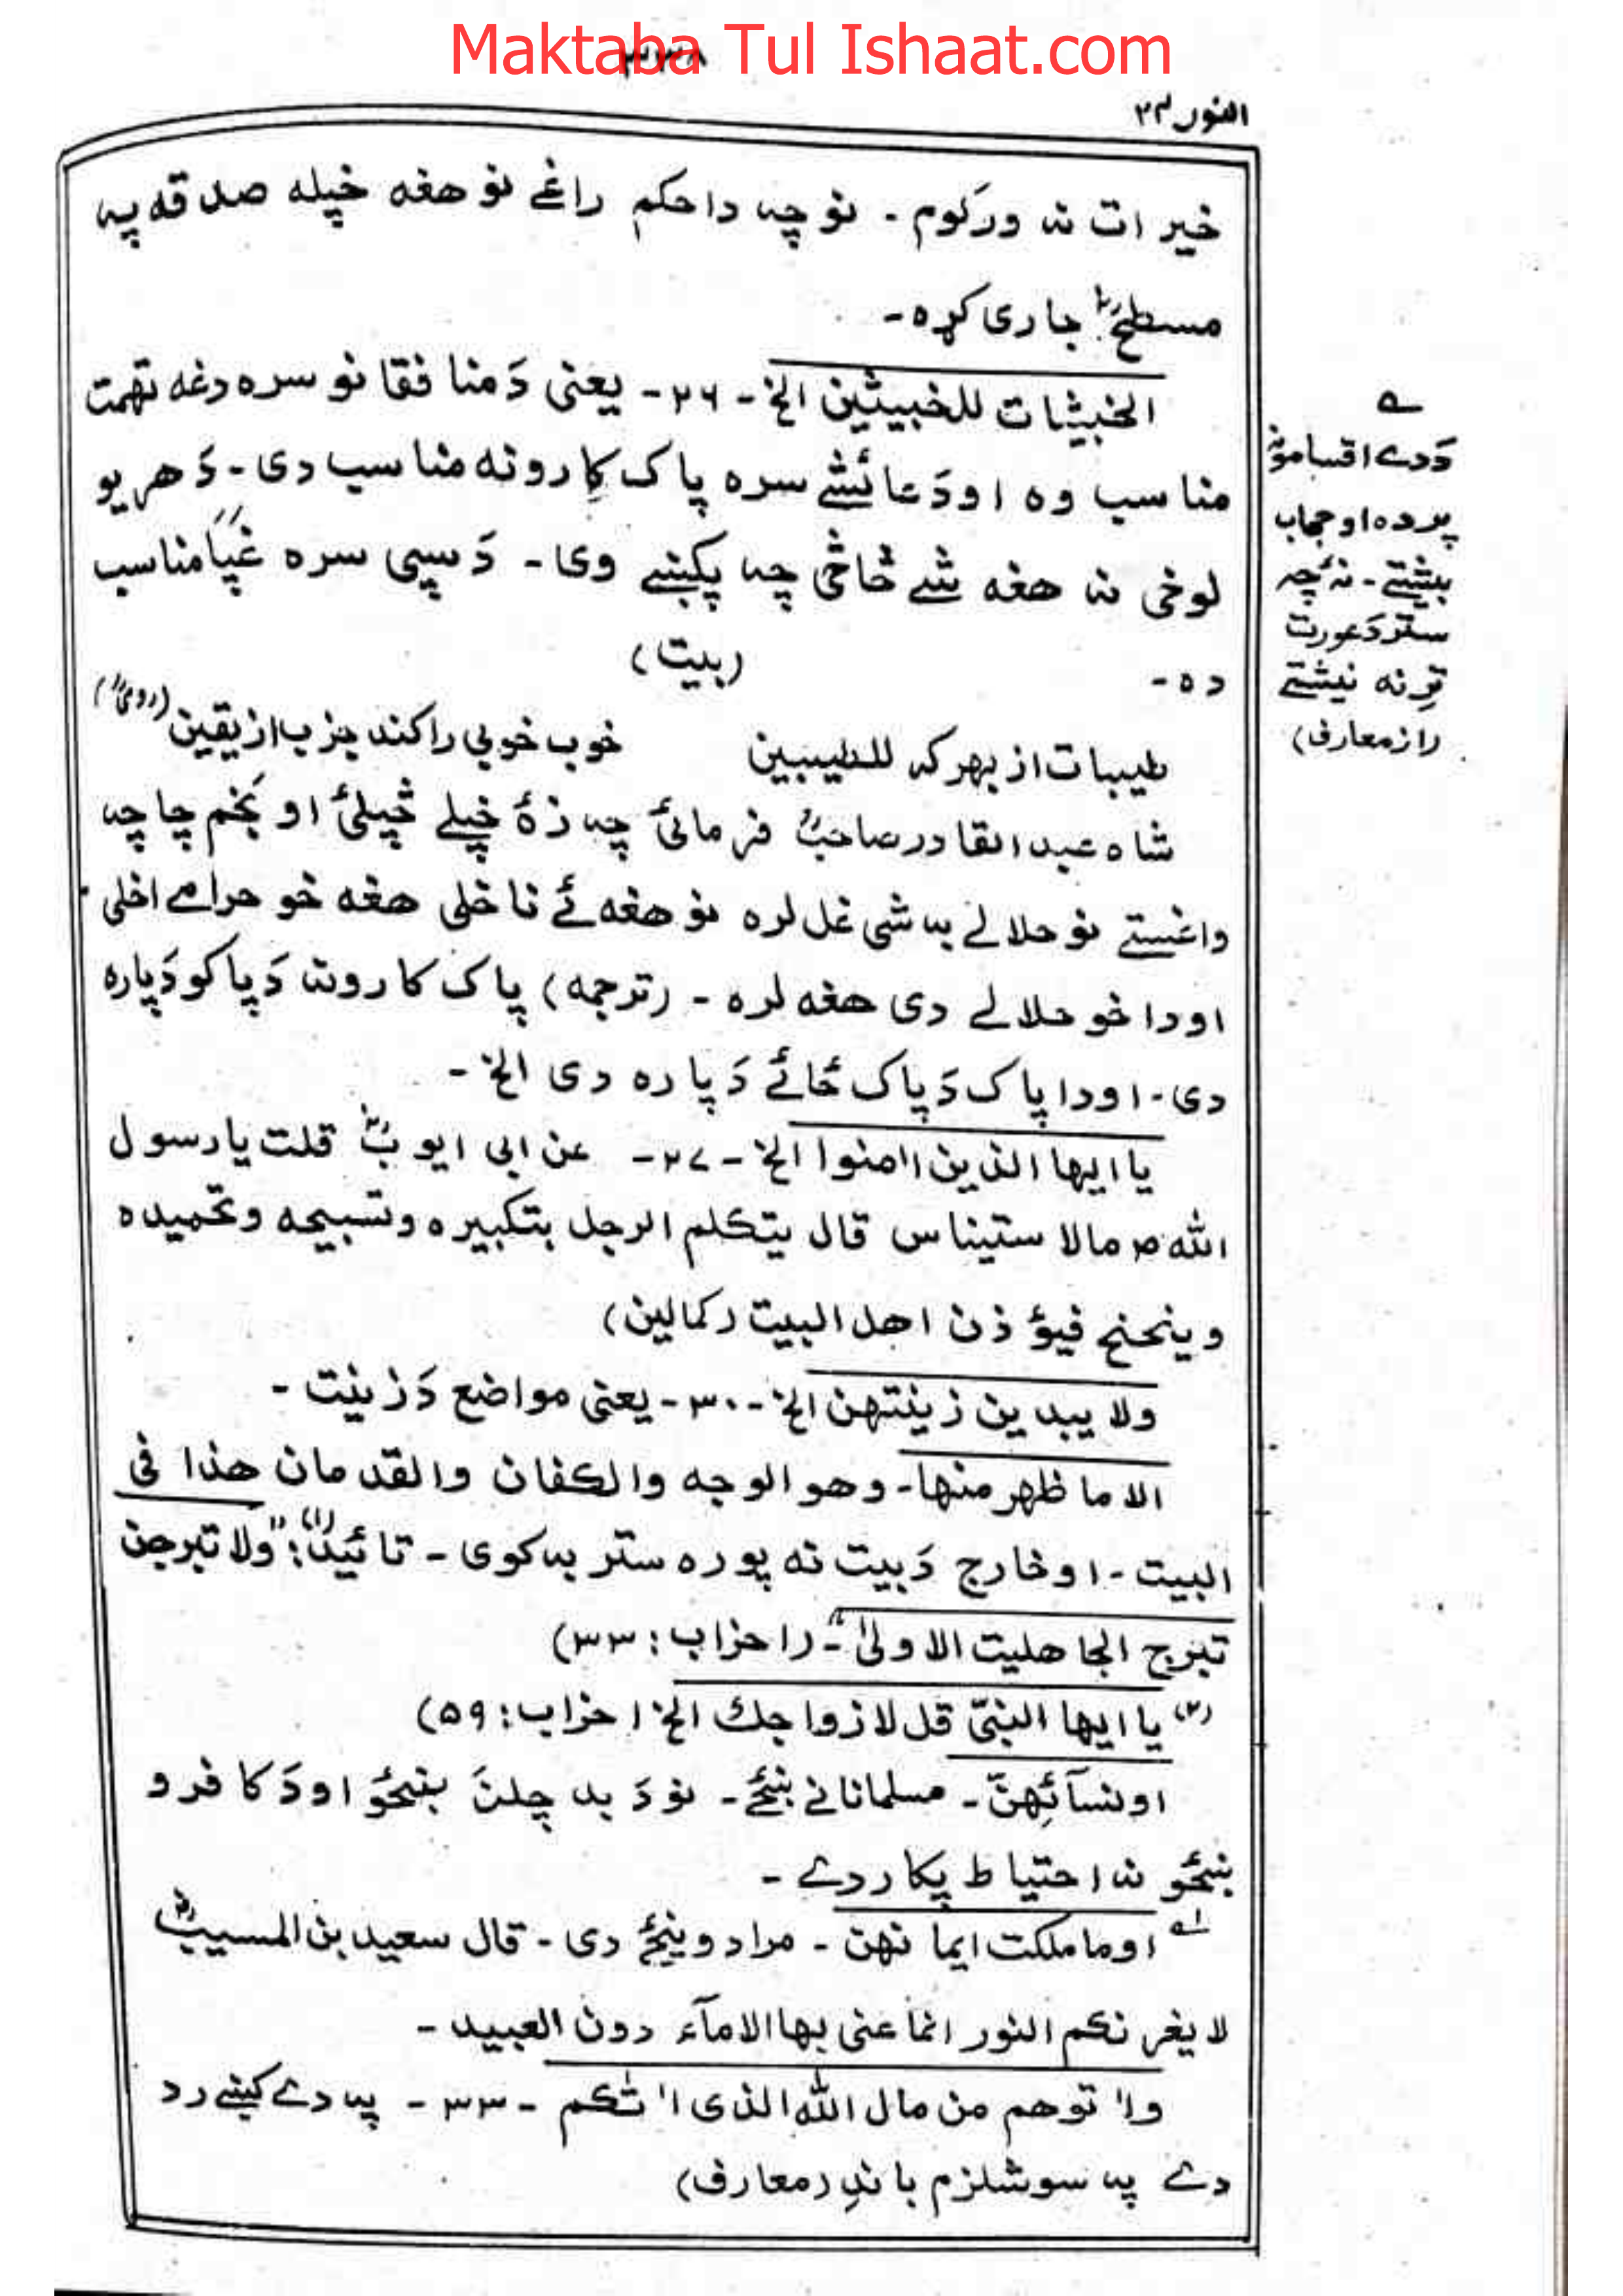 Maktaba Tul Ishaat.com
٣٣٨
النور ٢٤
خیرات نہ ورکوم - نو چہ دا حکم راغے نو هغه خپله صدقه پہ
مسطحؓ جاری کړه -
الخبیثات للخبیثین الخ - ٢٦ - یعنی دَ منافقانو سره دغه تهمت
مناسب وه اودَ عائشے سره پاک کارونه مناسب دی - دَ هر یو
لوخی نہ هغه شے څاڅی چہ پکښے وی - دَ سپی سره غپا مناسب
ده -
(بیت)
طیبات از بهر که للطیبین خوب خوبی را کند جزب از یقین (رومیؒ)
شاه عبدالقادر صاحبؒ فرمائی چہ زۀ خپلے څپلئ او بخم چا چہ
واغستے نو حلالے بہ شی غل لره نو هغه ئے نا خلی هغه خو حرامے اخلی
اودا خو حلالے دی هغه لره - (ترجمه) پاک کارونہ دَ پاکو دَپاره
دی - اودا پاک دَ پاک ځائے دَپاره دی الخ -
یا ایها الذین اٰمنوا الخ - ٢٧ - عن ابی ایوبؓ قلت یا رسول
اللّٰه ص مالا ستیناس قال یتکلم الرجل بتکبیره وتسبیحه وتحمیده
وینحنح فیؤذن اهل البیت (کمالین)
ولا یبدین زینتهن الخ - ٣٠ - یعنی مواضع دَ زینت -
الا ما ظهر منها - وهو الوجه والکفان والقدمان هذا فی
البیت - او خارج دَ بیت نه پوره ستر بہ کوی - تائید: (١) "ولا تبرجن
تبرج الجاهلیت الاولیٰ" - (احزاب: ٣٣)
(٢) یا ایها النبیّ قل لازواجك الخ احزاب: ٥٩)
اونسآئهنّ - مسلمانانے ښځے - نو دَ بد چلن ښځو اودَ کافرو
ښځو نہ احتیاط پکار دے -
اوما ملکت ایمانهن - مراد وینځے دی - قال سعید بن المسیبؒ
لا یغرنکم النور انما عنی بها الامآء دون العبید -
واٰتوهم من مال اللّٰه الذی اٰتٰکم - ٣٣ - پہ دے کښے رد
دے پہ سوشلزم باندِ (معارف)
دَدے اقسامونہ
پرده او حجاب
نیشتے - نہ چہ
ستر دَ عورت
ترِنه نیشتے
(از معارف)